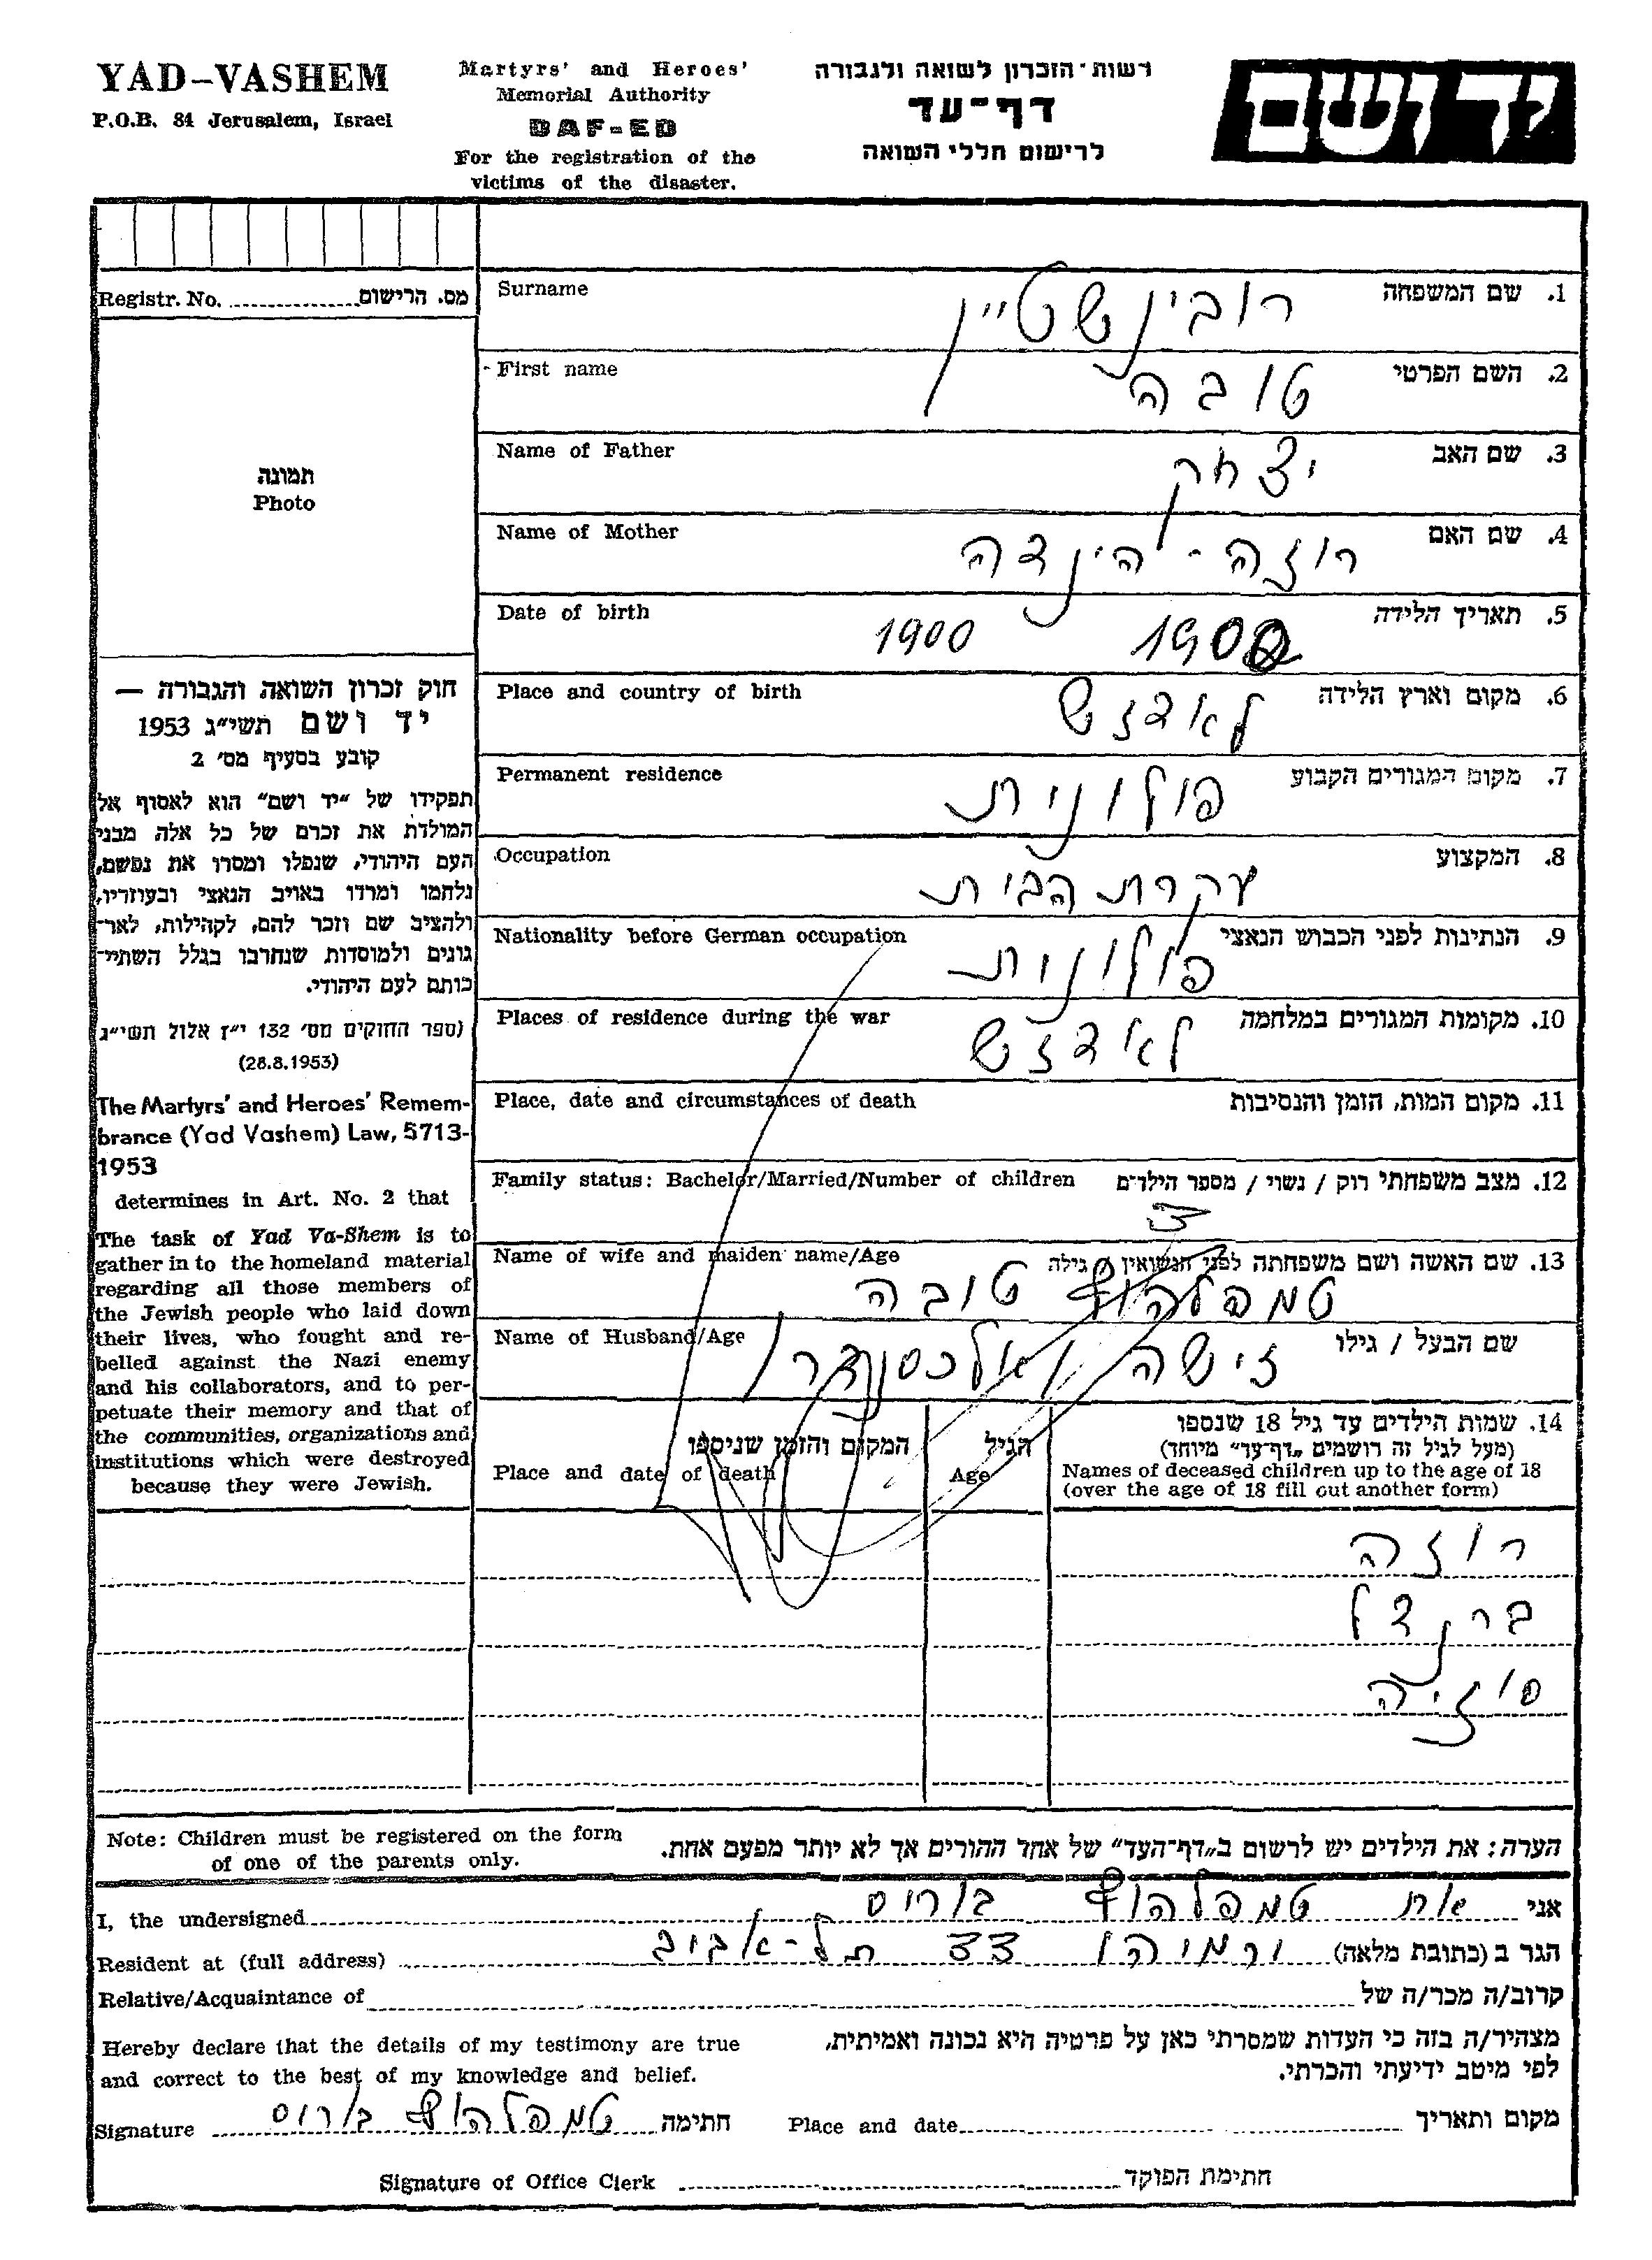 YAD-VASHEM
P.O.B. 84 Jerusalem, Israel
Martyrs' and Heroes'
Memorial Authority
DAF-ED
For the registration of the
victims of the disaster.
רשות-הזכרון לשואה ולגבורה
דף-עד
לרישום חללי השואה
יד ושם
Registr. No. מס. הרישום
תמונה
Photo
חוק זכרון השואה והגבורה —
יד ושם תשי״ג 1953
קובע בסעיף מס׳ 2
תפקידו של ״יד ושם״ הוא לאסוף אל
המולדת את זכרם של כל אלה מבני
העם היהודי, שנפלו ומסרו את נפשם,
נלחמו ומרדו באויב הנאצי ובעוזריו,
ולהציב שם וזכר להם, לקהילות, לאר־
גונים ולמוסדות שנחרבו בגלל השתיי־
כותם לעם היהודי.
(ספר החוקים מס׳ 132 י״ז אלול תשי״ג
(28.8.1953)
The Martyrs' and Heroes' Remem-
brance (Yad Vashem) Law, 5713-
1953
determines in Art. No. 2 that
The task of Yad Va-Shem is to
gather in to the homeland material
regarding all those members of
the Jewish people who laid down
their lives, who fought and re-
belled against the Nazi enemy
and his collaborators, and to per-
petuate their memory and that of
the communities, organizations and
institutions which were destroyed
because they were Jewish.
Surname 1. שם המשפחה
רובינשטיין
First name 2. השם הפרטי
טובה
Name of Father 3. שם האב
יצחק
Name of Mother 4. שם האם
רוזה - הינדה
Date of birth 5. תאריך הלידה
1900 1900
Place and country of birth 6. מקום וארץ הלידה
לאודזש
Permanent residence 7. מקום המגורים הקבוע
פולונית
Occupation 8. המקצוע
עקרת הבית
Nationality before German occupation 9. הנתינות לפני הכבוש הנאצי
פולונית
Places of residence during the war 10. מקומות המגורים במלחמה
לאודזש
Place, date and circumstances of death 11. מקום המות, הזמן והנסיבות
Family status: Bachelor/Married/Number of children 12. מצב משפחתי רוק / נשוי / מספר הילדים
3
Name of wife and maiden name/Age 13. שם האשה ושם משפחתה לפני הנשואין / גילה
טמפלהוף טובה
Name of Husband/Age שם הבעל / גילו
זישה אלכסנדר
14. שמות הילדים עד גיל 18 שנספו
(מעל לגיל זה רושמים ״דף-עד״ מיוחד)
Names of deceased children up to the age of 18
(over the age of 18 fill out another form)
הגיל
Age
המקום והזמן שניספו
Place and date of death
רוזה
ברנדל
סוזיה
Note: Children must be registered on the form
of one of the parents only.
הערה: את הילדים יש לרשום ב״דף-העד״ של אחד ההורים אך לא יותר מפעם אחת.
I, the undersigned אני
טמפלהוף בורוס
Resident at (full address) הגר ב (כתובת מלאה)
ירמיהו 33 תל-אביב
Relative/Acquaintance of קרוב/ה מכר/ה של
Hereby declare that the details of my testimony are true
and correct to the best of my knowledge and belief.
מצהיר/ה בזה כי העדות שמסרתי כאן על פרטיה היא נכונה ואמיתית,
לפי מיטב ידיעתי והכרתי.
Signature טמפלהוף בורוס חתימה
Place and date מקום ותאריך
Signature of Office Clerk חתימת הפוקד